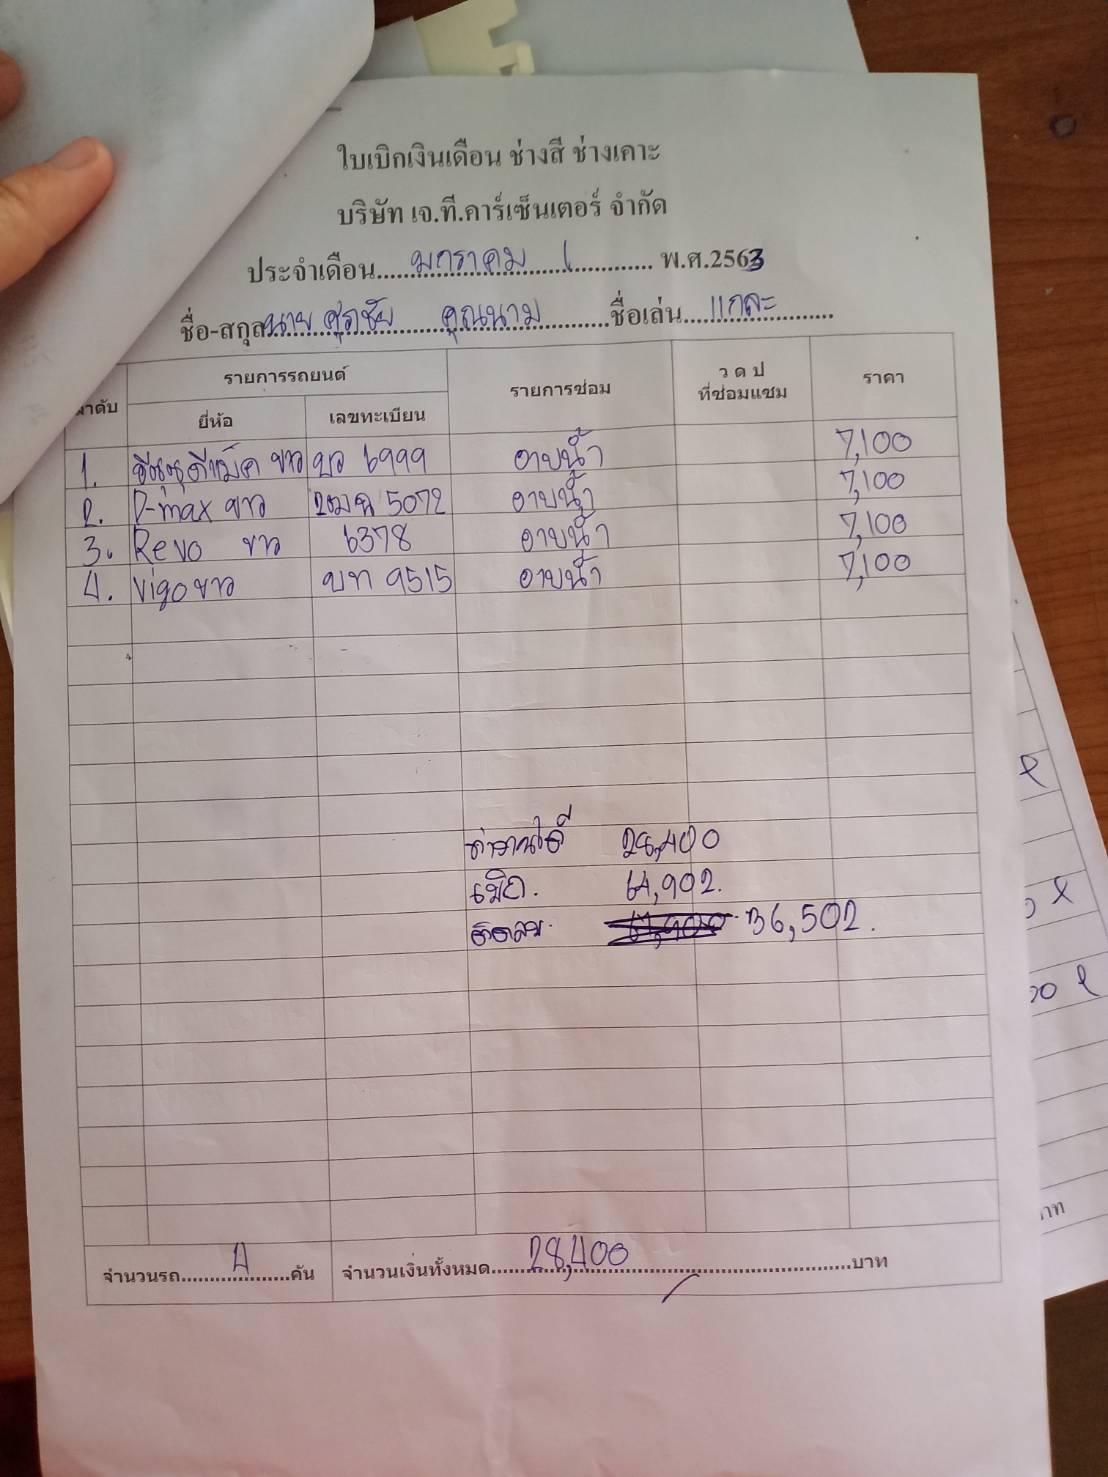 ใบเบิกเงินเดือน ช่างสี ช่างเคาะ
บริษัท เจ.ที.คาร์เซ็นเตอร์ จำกัด
ประจำเดือน.....มกราคม 1.....พ.ศ.2563
ชื่อ-สกุลนาย ศุภชัย คุณนาม.....ชื่อเล่น...แกละ.....
ลำดับ รายการรถยนต์ รายการซ่อม ว ด ป ที่ซ่อมแซม ราคา
ยี่ห้อ เลขทะเบียน
1. อีซูซุดีแม็ค ขาว บว 6999 อาบน้ำ 7,100
2. D-max ขาว 5072 อาบน้ำ 7,100
3. Revo ขาว 6378 อาบน้ำ 7,100
4. Vigo ขาว บท 9515 อาบน้ำ 7,100
ทำงานได้ 28,400
เบิก. 64,902.
ติดลบ. 36,502.
จำนวนรถ.....4.....คัน จำนวนเงินทั้งหมด.....28,400.....บาท
าท